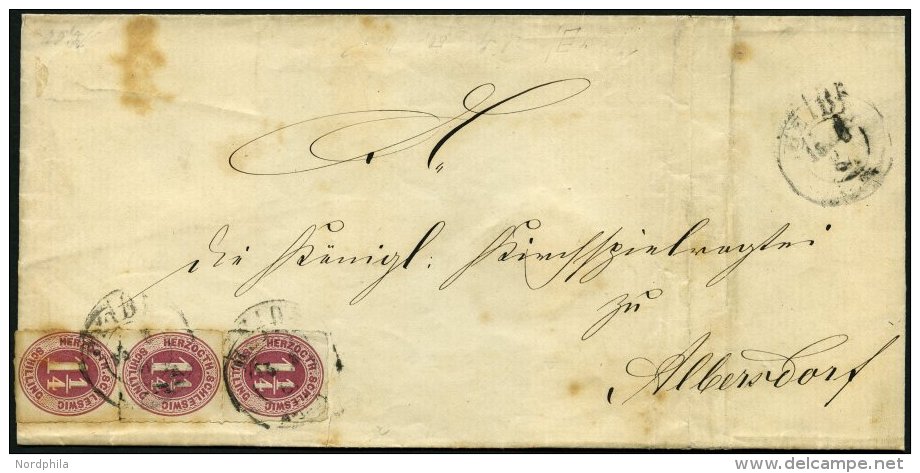 HEIDE
An
die Königl. Kirchspielvogtei
zu
Albersdorf
HERZOGTH. SCHLESWIG 1¼ SCHILLING
HERZOGTH. SCHLESWIG 1¼ SCHILLING
HERZOGTH. SCHLESWIG 1¼ SCHILLING
Nordphila
delcampe.net